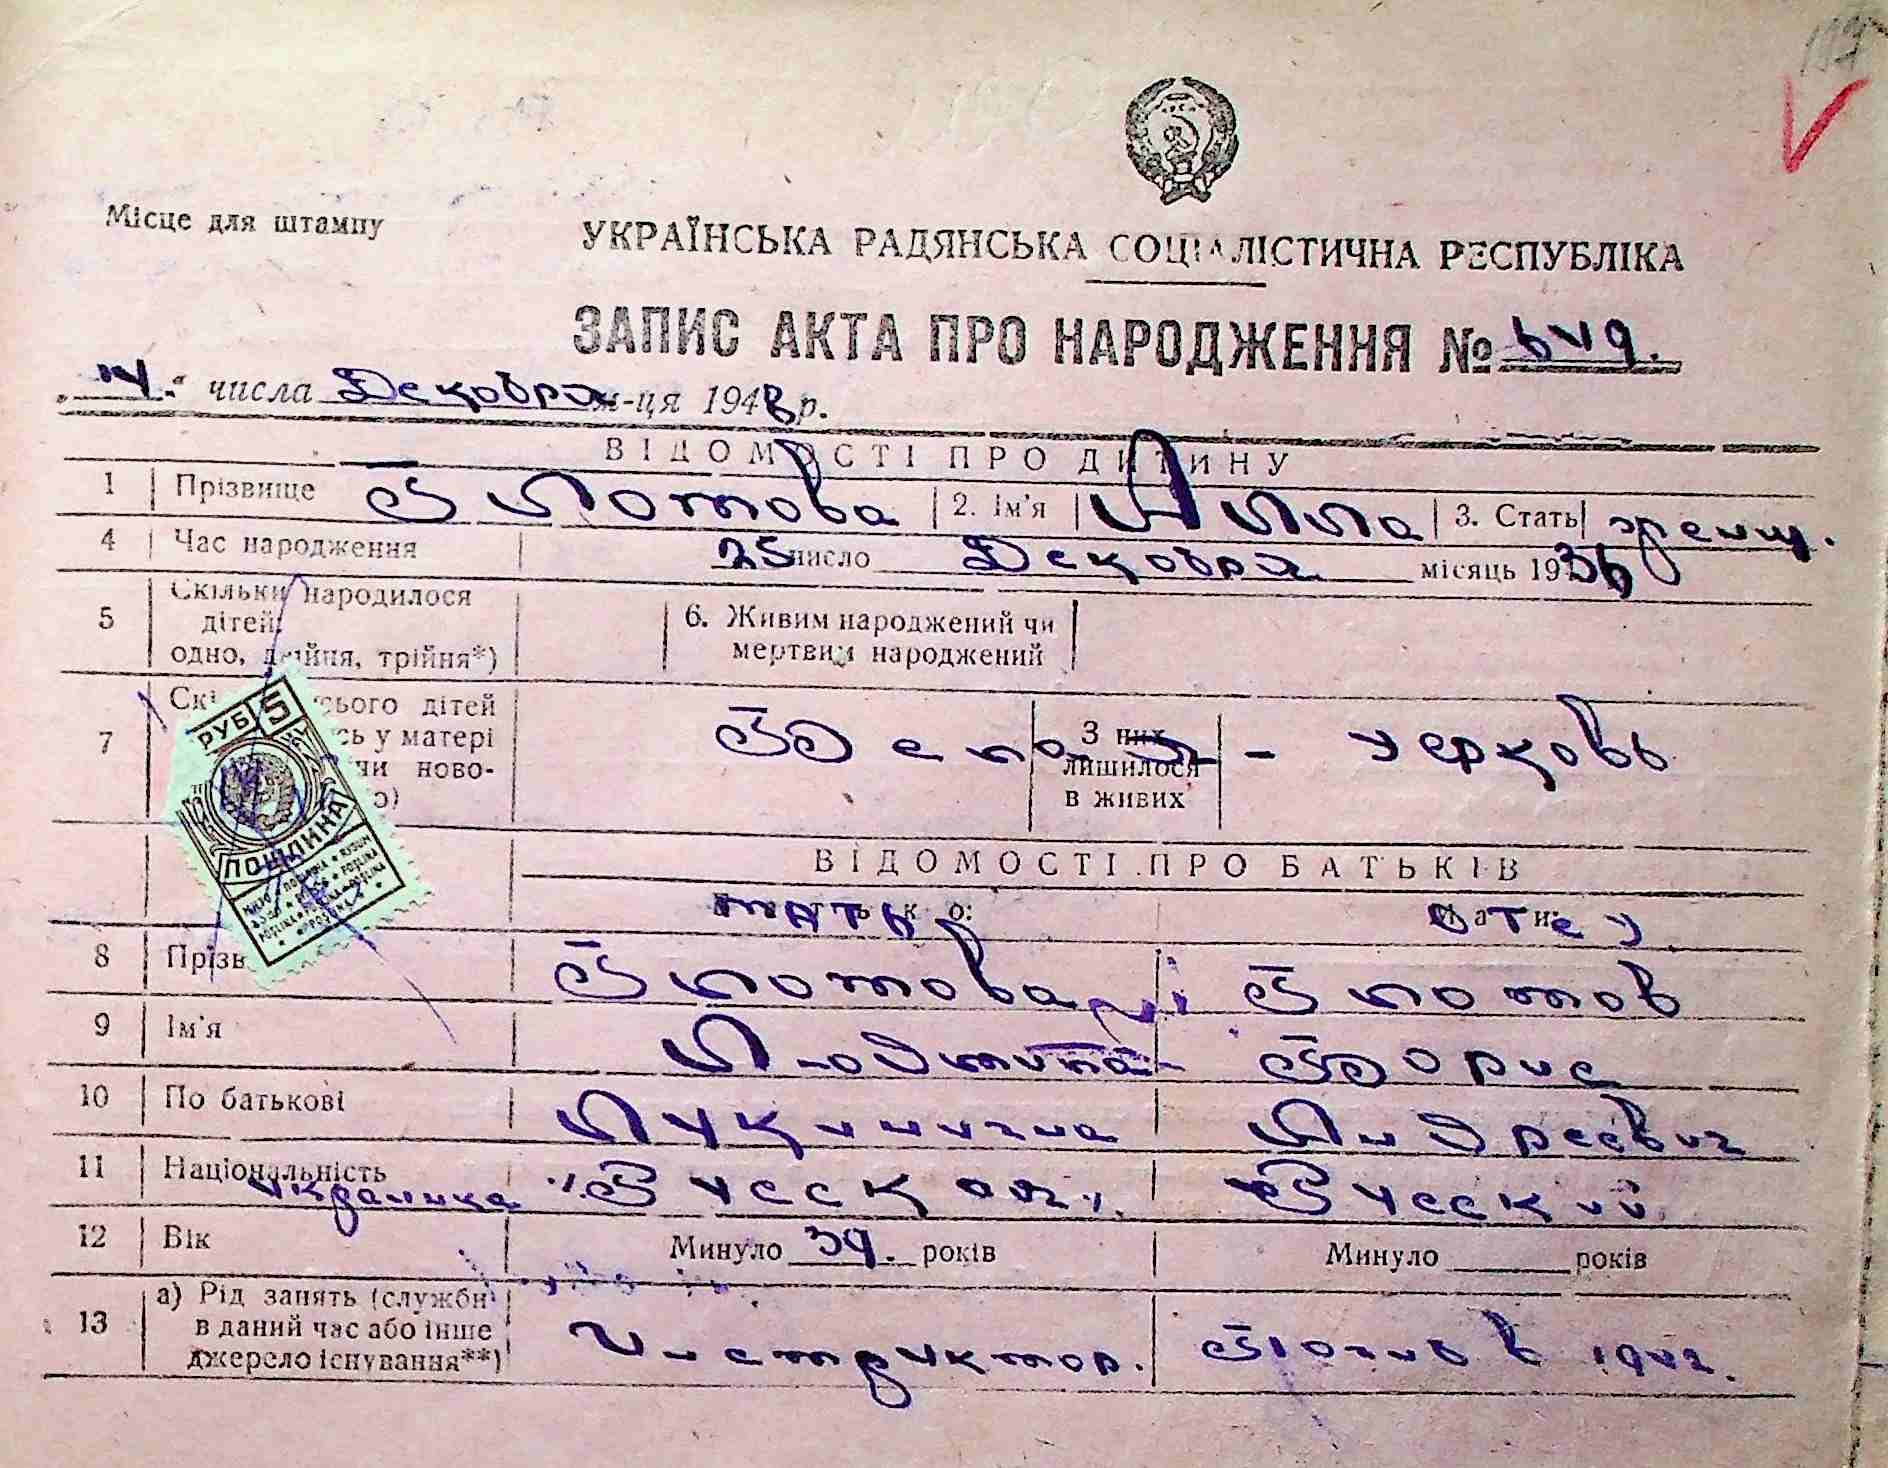 Місце для штампу
УКРАЇНСЬКА РАДЯНСЬКА СОЦІАЛІСТИЧНА РЕСПУБЛІКА
ЗАПИС АКТА ПРО НАРОДЖЕННЯ №
числа Декабря м-ця 194 р.
ВІДОМОСТІ ПРО ДИТИНУ
1 Прізвище 2. Ім'я 3. Стать женщ.
4 Час народження 25 число Декабря місяць 1936
5 Скільки народилося дітей: одно, двійня, трійня*)
6. Живим народжений чи мертвим народжений
7 сього дітей
сь у матері
чи ново-
о)
Белая - Церковь
З них лишилося в живих
РУБ 5
ПОШЛИНА
ВІДОМОСТІ ПРО БАТЬКІВ
мать отец
8 Прізв
9 Ім'я Людмила Борис
10 По батькові Лукинична Андреевич
11 Національність украинка "Русская" Русский
12 Вік Минуло 39. років Минуло років
13 а) Рід занять (служби в даний час або інше джерело існування**) Инструктор. Погиб в